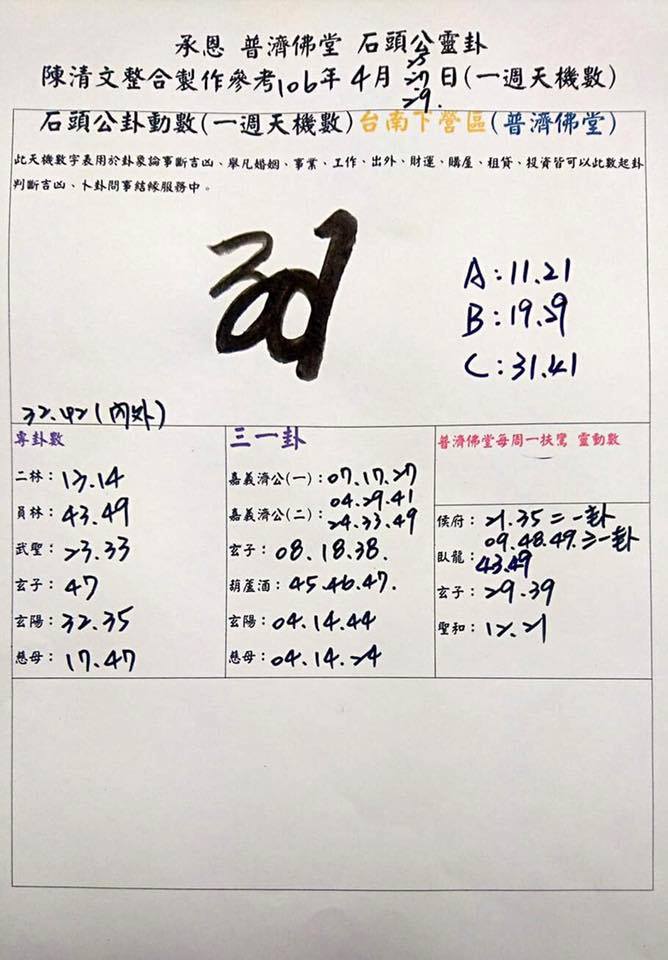 承恩 普濟佛堂 石頭公靈卦
陳清文整合製作參考106年4月25.27.29.日(一週天機數)
石頭公卦動數(一週天機數)台南下營區(普濟佛堂)
此天機數字表用於卦象論事斷吉凶、舉凡婚姻、事業、工作、出外、財運、購屋、租貸、投資皆可以此數起卦
判斷吉凶、卜卦問事結緣服務中。
A:11.21
B:19.29
C:31.41
32.42(內外)
專卦數
二林:13.14
員林:43.49
武聖:23.33
玄子:47
玄陽:32.35
慈母:17.47
三一卦
嘉義濟公(一):07.17.27
04.29.41
嘉義濟公(二):24.33.49
玄子:08.18.38.
葫蘆酒:45.46.47.
玄陽:04.14.44
慈母:04.14.24
普濟佛堂每周一扶鸞 靈動數
侯府:21.35=一卦
09.48.49.三一卦
臥龍:43.49
玄子:29.39
聖和:12.21